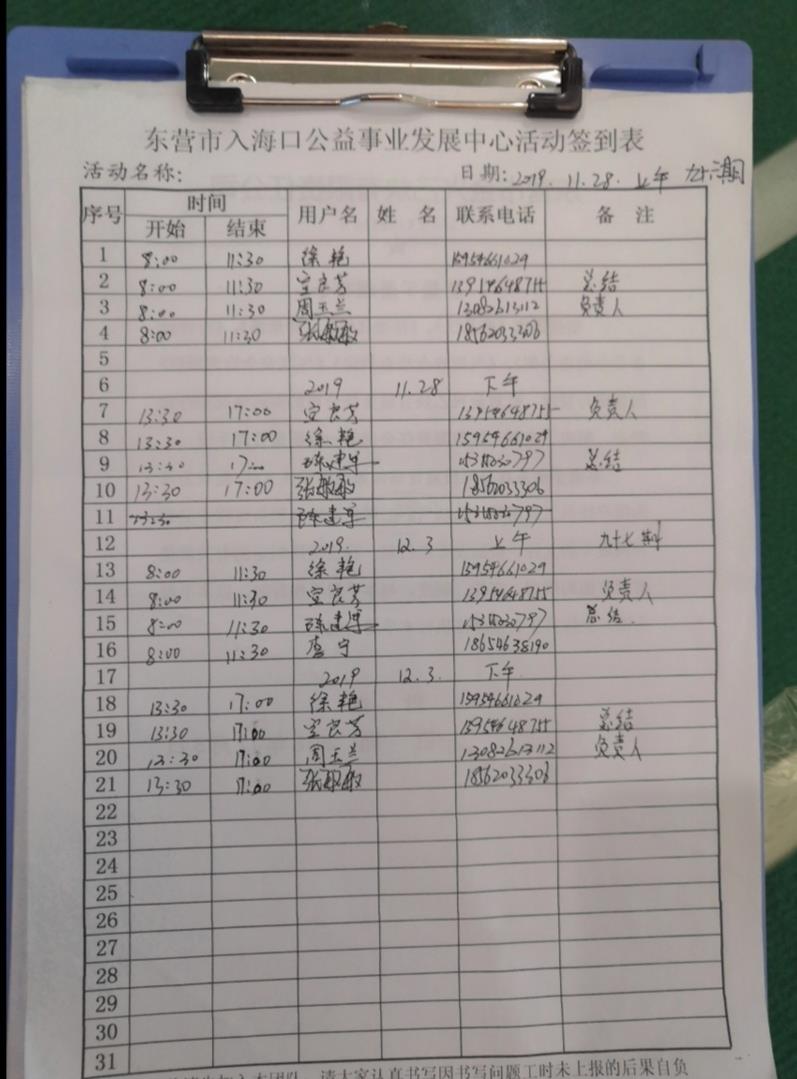 东营市入海口公益事业发展中心活动签到表
活动名称: 日期: 2019. 11.28. 上午 九十六期
序号 时间 用户名 姓 名 联系电话 备 注
开始 结束
1 8:00 11:30 徐艳 15954661029
2 8:00 11:30 良芳 总结
3 8:00 11:30 周玉兰 13082613112 负责人
4 8:00 11:30 张敏敏 18562033306
5
6 2019 11.28 下午
7 13:30 17:00 良芳 负责人
8 13:30 17:00 徐艳 15954661029
9 13:30 17:00 陈建军 总结
10 13:30 17:00 张敏敏 18562033306
11 13:30 陈建军
12 2019. 12.3 上午 九十七期
13 8:00 11:30 徐艳 15954661029
14 8:00 11:30 良芳 负责人
15 8:00 11:30 陈建军 总结
16 8:00 11:30 李宁 18654638190
17 2019 12.3. 下午
18 13:30 17:00 徐艳 15954661029
19 13:30 17:00 良芳 总结
20 13:30 17:00 周玉兰 13082613112 负责人
21 13:30 17:00 张敏敏 18562033306
22
23
24
25
26
27
28
29
30
31
请大家认真书写因书写问题工时未上报的后果自负